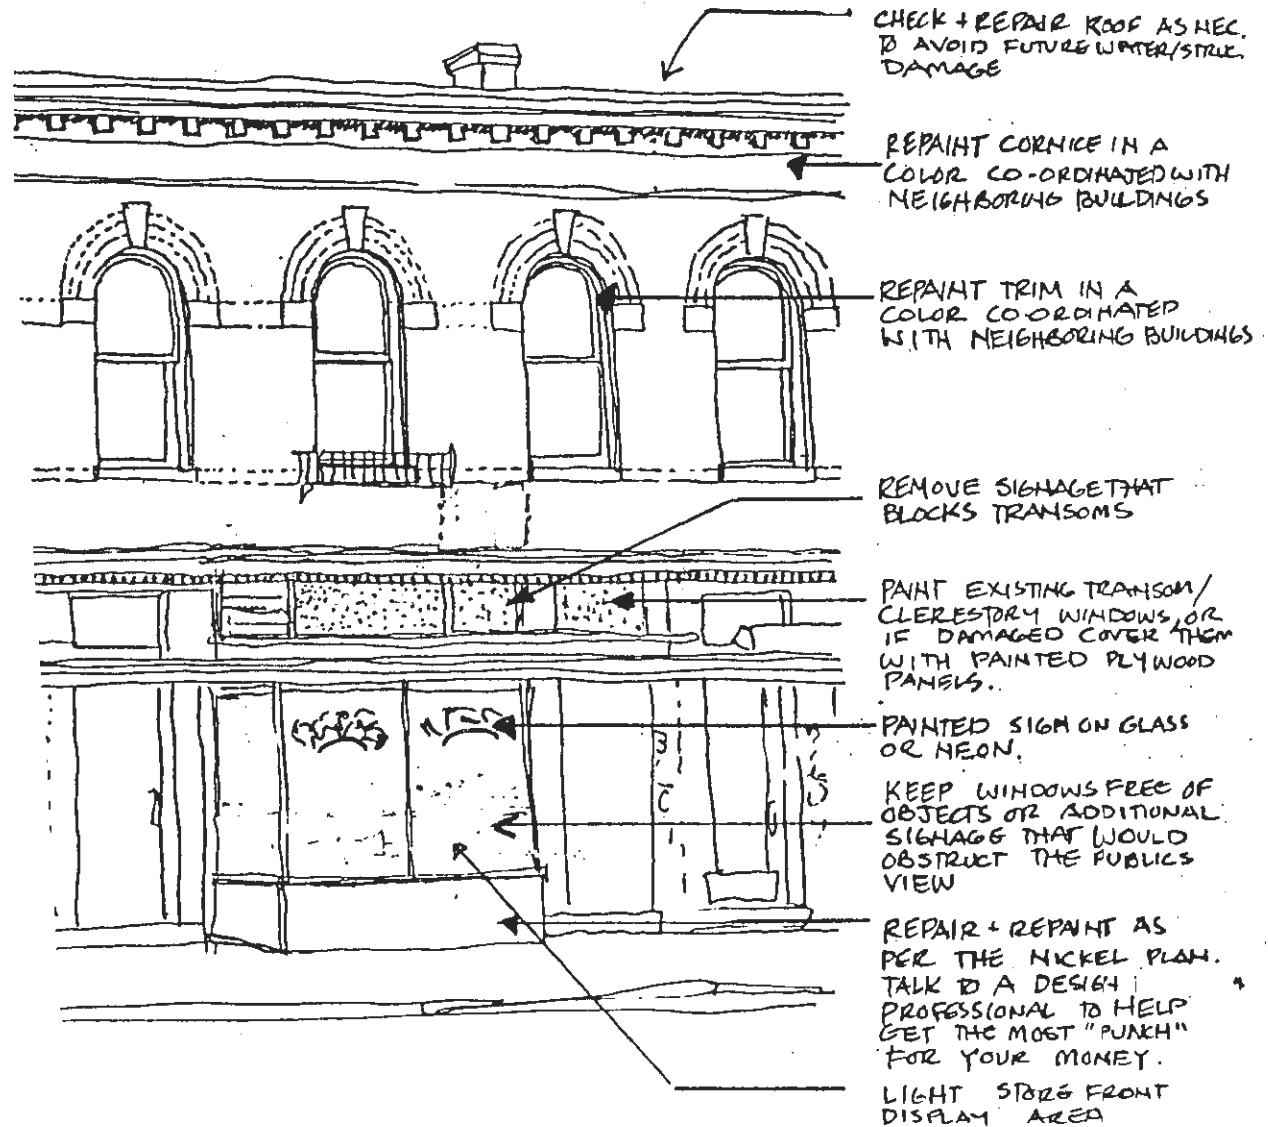 CHECK + REPAIR ROOF AS NEC.
TO AVOID FUTURE WATER/STRUC.
DAMAGE
REPAINT CORNICE IN A
COLOR CO-ORDINATED WITH
NEIGHBORING BUILDINGS
REPAINT TRIM IN A
COLOR CO-ORDINATED
WITH NEIGHBORING BUILDINGS
REMOVE SIGNAGE THAT
BLOCKS TRANSOMS
PAINT EXISTING TRANSOM/
CLERESTORY WINDOWS, OR
IF DAMAGED COVER THEM
WITH PAINTED PLYWOOD
PANELS.
PAINTED SIGN ON GLASS
OR NEON.
KEEP WINDOWS FREE OF
OBJECTS OR ADDITIONAL
SIGNAGE THAT WOULD
OBSTRUCT THE PUBLICS
VIEW
REPAIR + REPAINT AS
PER THE NICKEL PLAN.
TALK TO A DESIGN
PROFESSIONAL TO HELP
GET THE MOST "PUNCH"
FOR YOUR MONEY.
LIGHT STORE FRONT
DISPLAY AREA